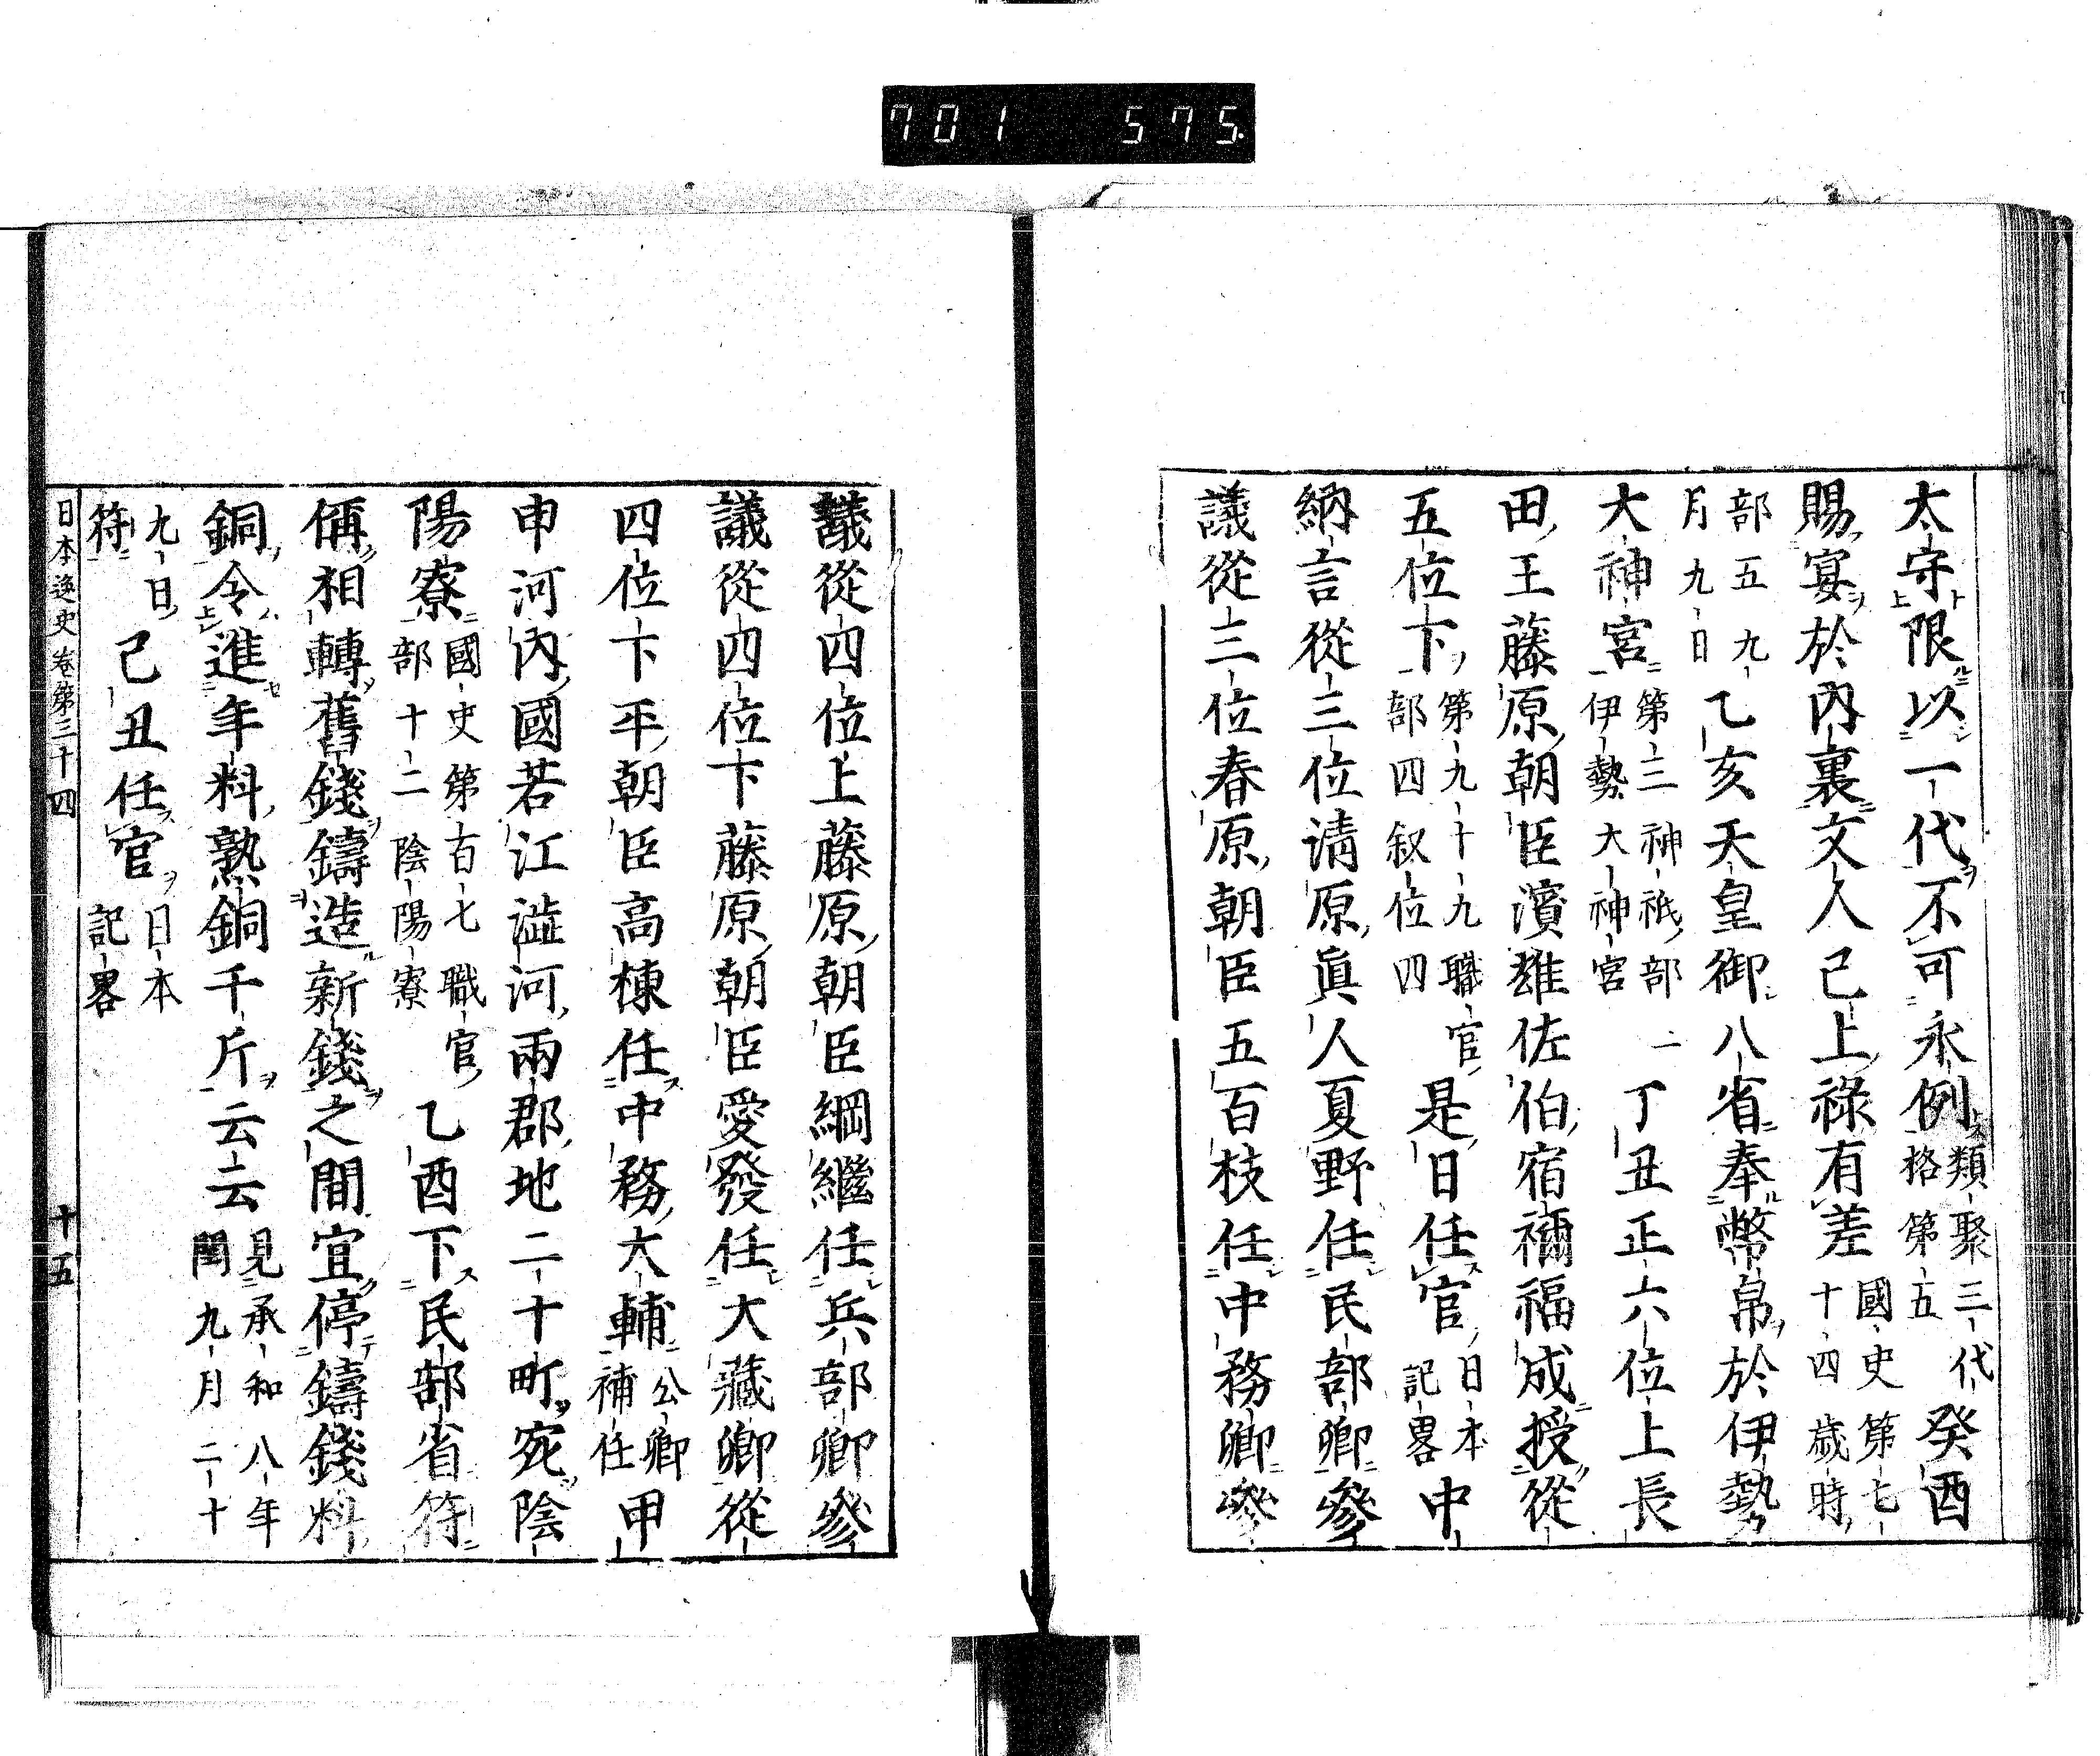 701 575
太守限以一代不可永例類聚三代格第五癸酉
賜宴於內裏文人已上祿有差國史第七十四歲時
部五九月九日乙亥天皇御八省奉幣帛於伊勢
大神宮第三神祇部一伊勢大神宮丁丑正六位上長
田王藤原朝臣濱雄佐伯宿禰福成授從
五位下第九十九職官部四叙位四是日任官日本記畧中
納言從三位清原眞人夏野任民部卿參
議從三位春原朝臣五百枝任中務卿參
議從四位上藤原朝臣綱繼任兵部卿參
議從四位下藤原朝臣愛發任大藏卿從
四位下平朝臣高棟任中務大輔公卿補任甲
申河內國若江澁河兩郡地二十町宛陰
陽寮國史第百七職官部十二陰陽寮乙酉下民部省符
偁相轉舊錢鑄造新錢之間宜停鑄錢料
銅令進年料熟銅千斤云云見承和八年閏九月二十
九日符己丑任官日本記畧
日本逸史卷第三十四 十五